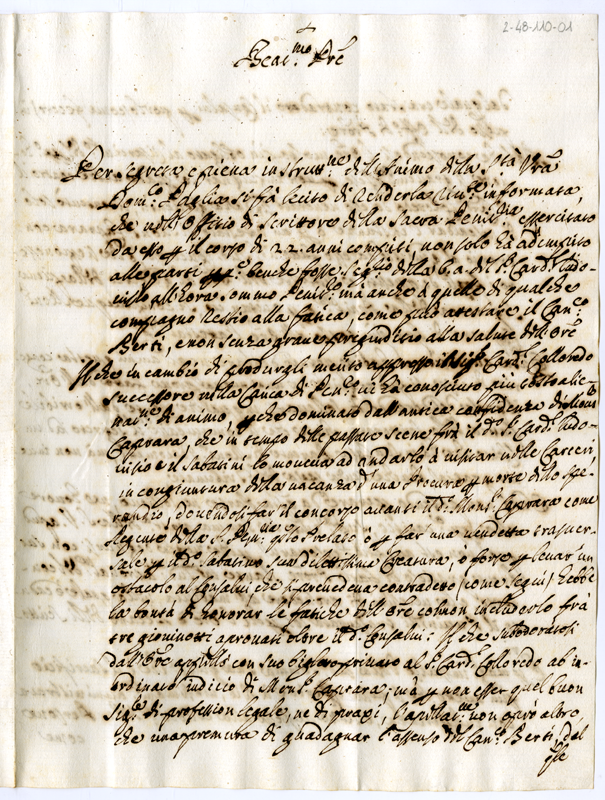 2-48-110-01
+
Beat.mo Pre
Per segreta e piena instrutt.ne dell'Animo della S.tà Vra
Dom.co Paglia si fà lecito di renderla um.te informata,
che nell'Offitio di Scrittore della Sacra Penit.ria esercitato
da esso p il corso di 22. anni compiti, non solo hà adempito
alle parti benche fosse Seg.rio della b. a. del S. Card. Ludo-
visio all'hora sommo Penit.re mà anche à quelle di qualche
compagno restio alla fatica, come può attestare il Can.co
Berti, e non senza grave pregiuditio alla salute dell'Ore
Il che in cambio di produrgli merito appresso il Sig.r Card. Colloredo
successore nella Carica di Pen.re vi hà conosciuto più tosto alie-
nat.ne di animo, p che dominato dall'antica confidenza di Mons.
Caprara che in tempo delle passate scene frà il d.o S. Card. Ludo-
visio e il Sabatini lo moveva ad andarlo à visitar nelle Carceri,
in congiuntura della vacanza d'una Procura p morte dello Spe-
randio, dovendosi far il concorso avanti il d.o Mons. Caprara come
Regente della S. Pen.ria Prelato ò p far una vendetta trasver-
sale p il d.o Sabatino sua dilettissima Creatura, ò forse p levar un
ostacolo al Consalvi che si prendeva contradetto (come segui) hebbe
la bontà di honorar le fatiche dell'Ore col non includerlo frà
tre giovinotti aprovati oltre il d.o Consalvi: Il che
dall'Ore appellò con suo biglietto privato al S. Card. Colloredo ab in-
ordinato iudicio di Mons. Caprara; mà p non esser quel buon
Sig.re di profession legale, ne di pratica, non oprò altro,
che una premura di guadagnar l'assenso del Can.co Berti, del
qle